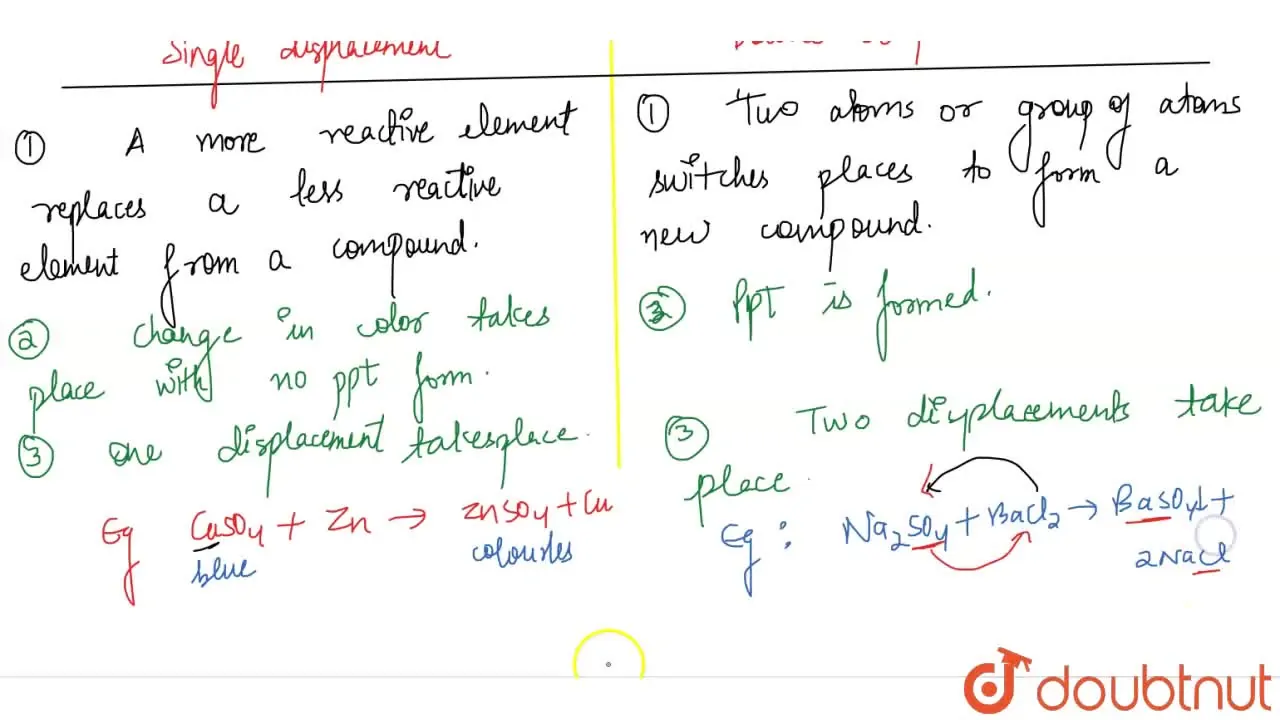 Single displacement
① A more reactive element
replaces a less reactive
element from a compound.
② change in color takes
place with no ppt form.
③ one displacement takesplace.
Eg CuSO4 + Zn → ZnSO4 + Cu
blue colourles
① Two atoms or group of atoms
switches places to form a
new compound.
② Ppt is formed.
③ Two displacements take
place.
Eg : Na2SO4 + BaCl2 → BaSO4↓ +
2NaCl
doubtnut